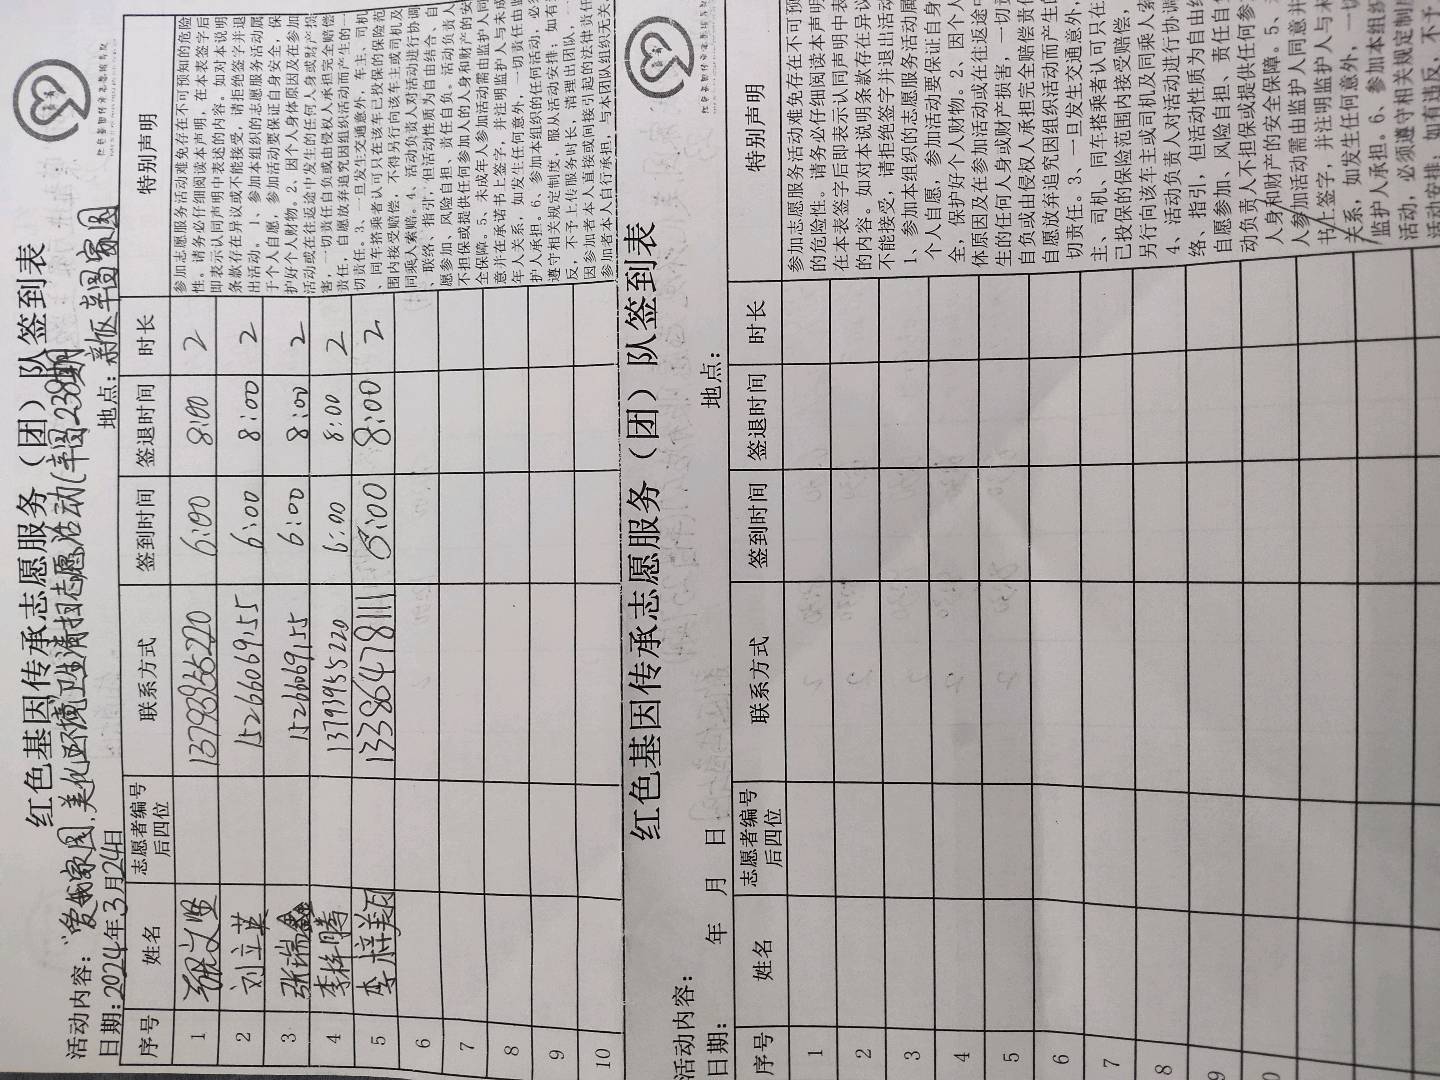 红色基因传承志愿服务（团）队签到表
活动内容：“爱我家园，美化环境卫生清扫志愿活动(丰园238期
日期：2024年3月24日 地点：新区丰园家园
序号 姓名 志愿者编号后四位 联系方式 签到时间 签退时间 时长 特别声明
1 6:00 8:00 2
2 刘立英 15266069155 6:00 8:00 2
3 张瑞鑫 15266069155 6:00 8:00 2
4 李梓腾 13793955220 6:00 8:00 2
5 李梓美 13386478111 6:00 8:00 2
6
7
8
9
10
参加志愿服务活动难免存在不可预知的危险
性。请务必仔细阅读本声明，在本表签字后
即表示认同声明中表述的内容。如对本说明
条款存在异议或不能接受，请拒绝签字并退
出活动。1、参加本组织的志愿服务活动属
于个人自愿，参加活动要保证自身安全，保
护好个人财物。2、因个人身体原因及在参加
活动或在往返途中发生的任何人身或财产损
害，一切责任自负或由侵权人承担完全赔偿
责任，自愿放弃追究因组织活动而产生的一
切责任。3、一旦发生交通意外，车主、司机
、同车搭乘者认可只在该车已投保的保险范
围内接受赔偿，不得另行向该车主或司机及
同乘人索赔。4、活动负责人对活动进行协调
、联络、指引，但活动性质为自由结合，自
愿参加、风险自担、责任自负。活动负责人
不担保或提供任何参加人的人身和财产的安
全保障。5、未成年人参加活动需由监护人同
意并在承诺书上签字，并注明监护人与未成
年人关系，如发生任何意外，一切责任由监
护人承担。6、参加本组织的任何活动，必须
遵守相关规定制度，服从活动安排；如有违
反，不予上传服务时长，清理出团队，
因参加者本人直接或间接引起的法律责任
参加者本人自行承担，与本团队组织无关。
红色基因传承志愿服务（团）队签到表
活动内容：
日期： 年 月 日 地点：
序号 姓名 志愿者编号后四位 联系方式 签到时间 签退时间 时长 特别声明
1
2
3
4
5
6
7
8
9
参加志愿服务活动难免存在不可预
的危险性。请务必仔细阅读本声明
在本表签字后即表示认同声明中表
的内容。如对本说明条款存在异议
不能接受，请拒绝签字并退出活动
1、参加本组织的志愿服务活动属
个人自愿，参加活动要保证自身
全，保护好个人财物。2、因个人
体原因及在参加活动或在往返途中
生的任何人身或财产损害，一切责
自负或由侵权人承担完全赔偿责任
自愿放弃追究因组织活动而产生的
切责任。3、一旦发生交通意外，
主、司机、同车搭乘者认可只在
已投保的保险范围内接受赔偿，
另行向该车主或司机及同乘人索
4、活动负责人对活动进行协调
络、指引，但活动性质为自由结
自愿参加、风险自担、责任自负
动负责人不担保或提供任何参
人身和财产的安全保障。5、
人参加活动需由监护人同意并
书上签字，并注明监护人与未
关系，如发生任何意外，一切
监护人承担。6、参加本组织
活动，必须遵守相关规定制度
活动安排；如有违反，不予